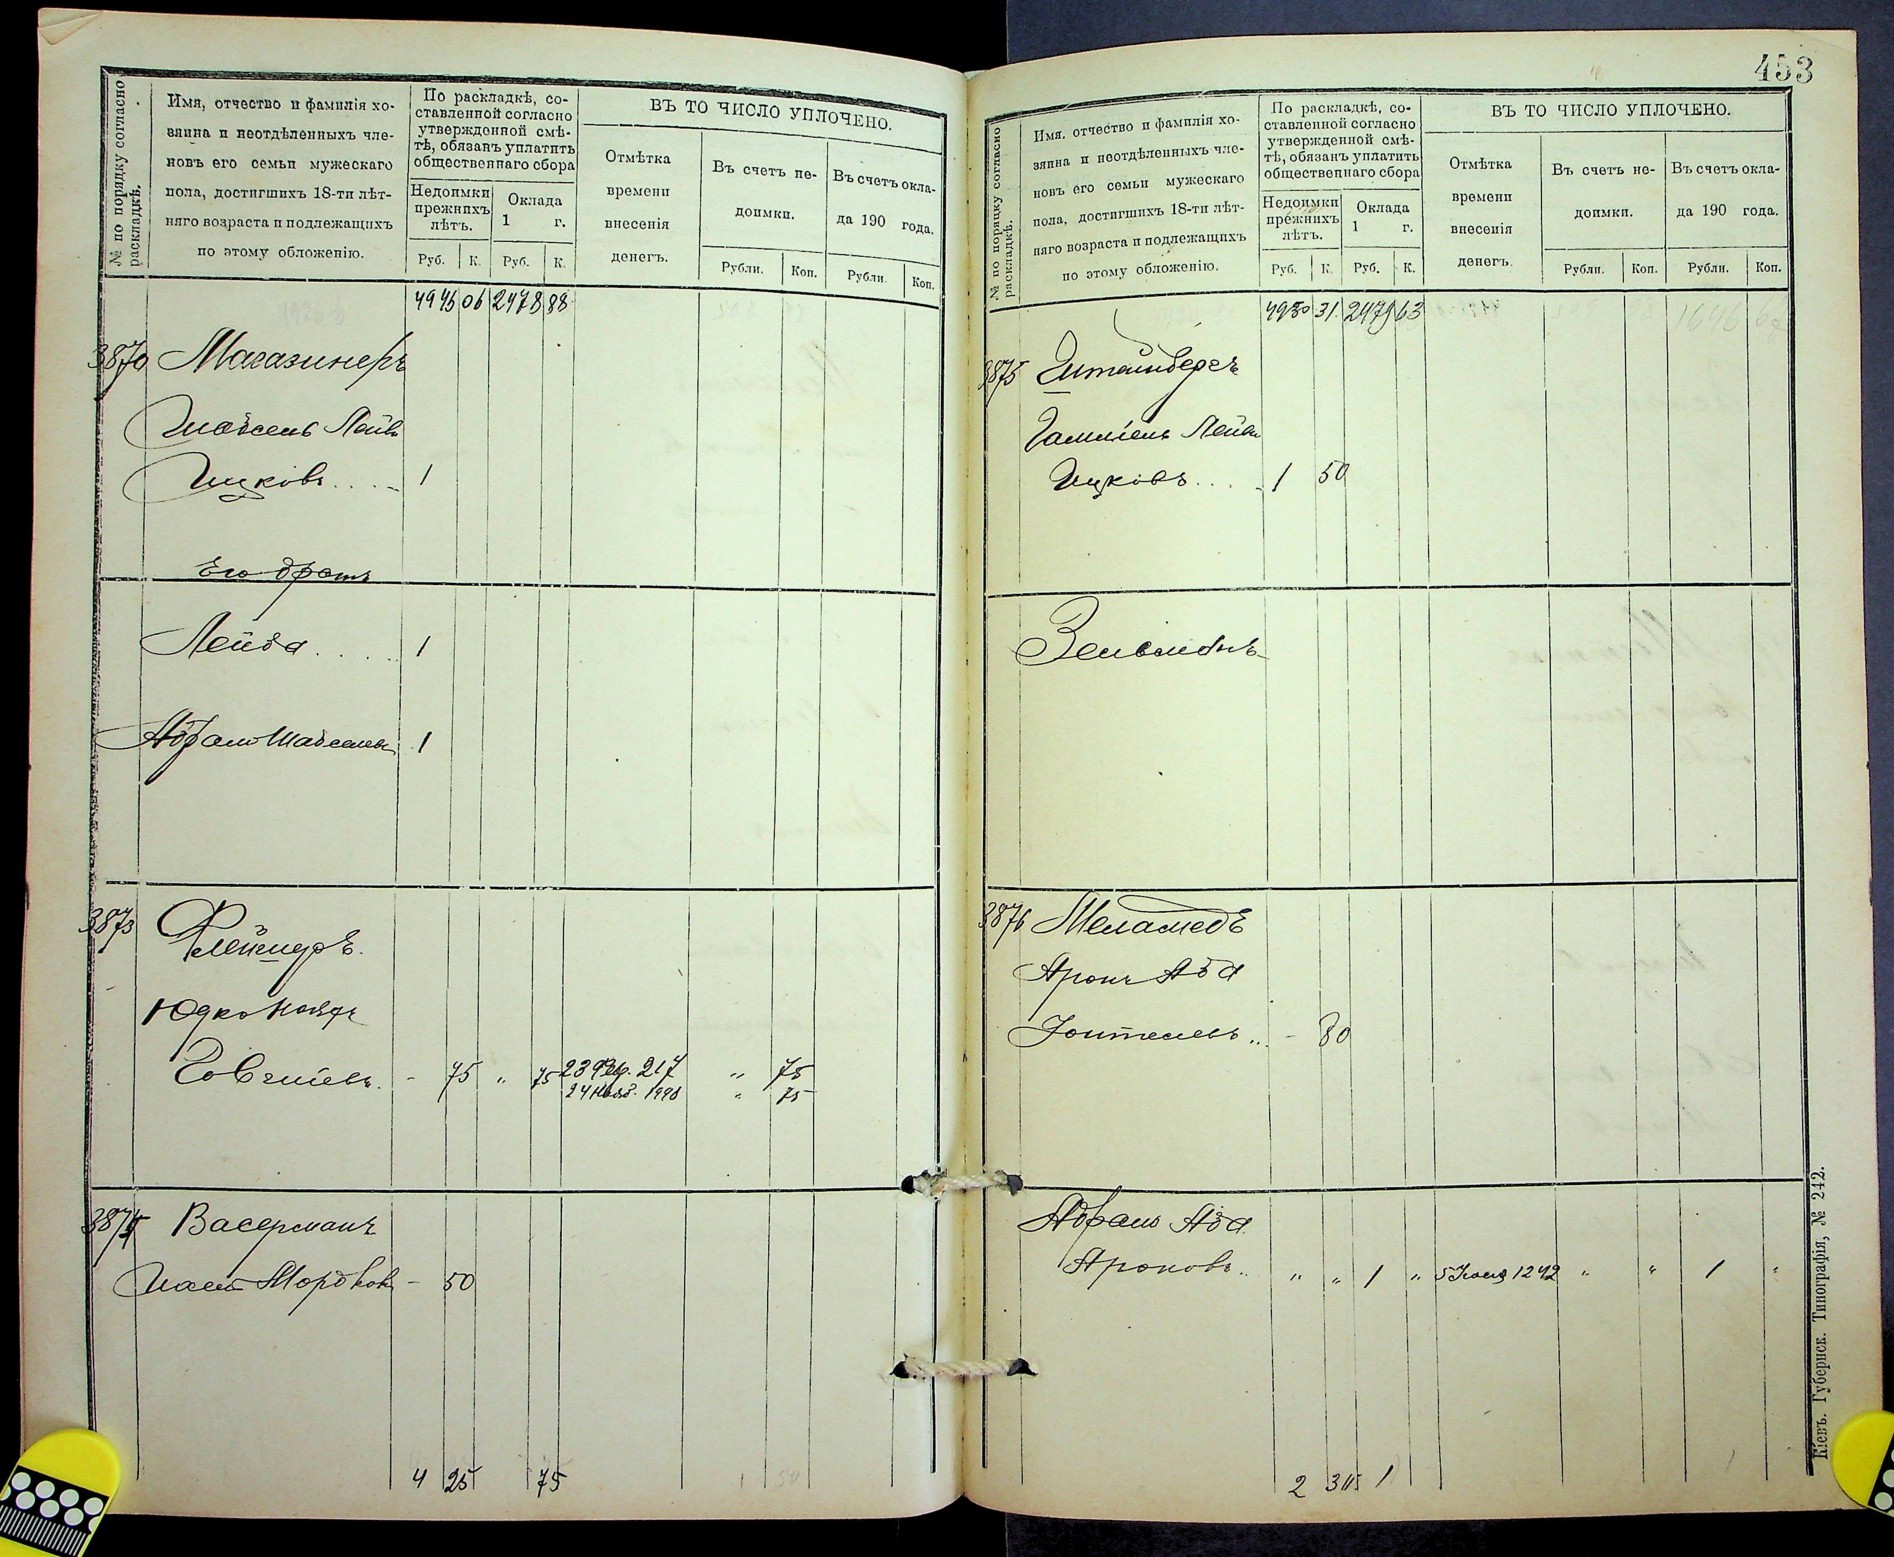 № по порядку согласно раскладкѣ.
Имя, отчество и фамилія хо-
зяина и неотдѣленныхъ чле-
новъ его семьи мужескаго
пола, достигшихъ 18-ти лѣт-
няго возраста и подлежащихъ
по этому обложенію.
По раскладкѣ, со-
ставленной согласно
утвержденной смѣ-
тѣ, обязанъ уплатить
общественнаго сбора
Недоимки
прежнихъ
лѣтъ.
Оклада
1 г.
Руб. К. Руб. К.
ВЪ ТО ЧИСЛО УПЛОЧЕНО.
Отмѣтка
времени
внесенія
денегъ.
Въ счетъ не-
доимки.
Въ счетъ окла-
да 190 года.
Рубли. Коп. Рубли. Коп.
4946 06 2478 88
3870 Магазинеръ
Шабсель Лейб
Ицковъ . . . 1
Его братъ
Лейба . . . . 1
Абрамъ Шабселевъ . 1
3873
Юдко
- 75 " 75 23 217 " 75
24 Нояб. 1998 " 75
3874 Васерманъ
Мордков - 50
4 25 75
453
№ по порядку согласно раскладкѣ.
Имя, отчество и фамилія хо-
зяина и неотдѣленныхъ чле-
новъ его семьи мужескаго
пола, достигшихъ 18-ти лѣт-
няго возраста и подлежащихъ
по этому обложенію.
По раскладкѣ, со-
ставленной согласно
утвержденной смѣ-
тѣ, обязанъ уплатить
общественнаго сбора
Недоимки
прежнихъ
лѣтъ.
Оклада
1 г.
Руб. К. Руб. К.
ВЪ ТО ЧИСЛО УПЛОЧЕНО.
Отмѣтка
времени
внесенія
денегъ.
Въ счетъ не-
доимки.
Въ счетъ окла-
да 190 года.
Рубли. Коп. Рубли. Коп.
31 2479 63
3875 Штейнбергъ
Лейб
Ицковъ . . . 1 50
3876 Меламедъ
Аронъ Аба
- 80
Абрамъ Аба
Ароновъ . . " " 1 " 5 1242 " " 1 "
2 1
Кіевъ. Губернск. Типографія, № 242.